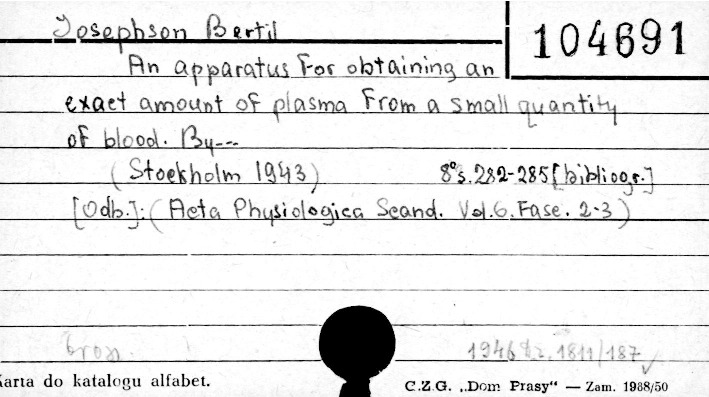 Josephson Bertil
104691
An apparatus for obtaining an
exact amount of plasma from a small quantity
of blood. By---
(Stockholm 1943) 8° s. 282-285 [bibliogr.]
[Odb.]: (Acta Physiologica Scand. Vol. 6. Fasc. 2-3)
Brosz.
1946 1811/187
Karta do katalogu alfabet.
C.Z.G. „Dom Prasy“ — Zam. 1988/50